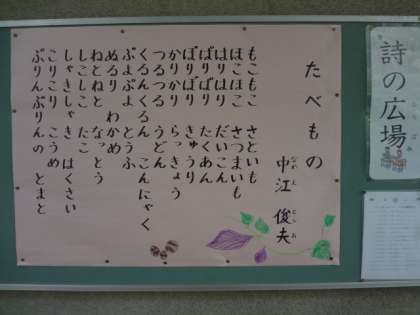 詩の広場
たべもの
中江 俊夫
もこもこ さといも
ほこほこ さつまいも
はりはり だいこん
ぱりぱり たくあん
ぽりぽり きゅうり
かりかり らっきょう
つるつる うどん
くるんくるん こんにゃく
ぷよぷよ とうふ
ぬるり わかめ
ねとねと なっとう
しこしこ たこ
しゃきしゃき はくさい
こりこり こうめ
ぷりんぷりんの とまと